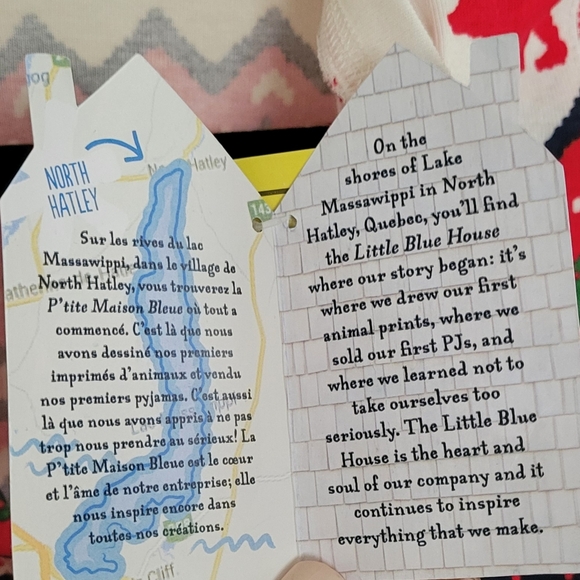 NORTH
HATLEY
Hatley
143
Sur les rives du lac
Massawippi, dans le village de
North Hatley, vous trouverez la
P'tite Maison Bleue où tout a
commencé. C'est là que nous
avons dessiné nos premiers
imprimés d'animaux et vendu
nos premiers pyjamas. C'est aussi
là que nous avons appris à ne pas
trop nous prendre au sérieux! La
P'tite Maison Bleue est le cœur
et l'âme de notre entreprise; elle
nous inspire encore dans
toutes nos créations.
Cliff
On the
shores of Lake
Massawippi in North
Hatley, Quebec, you'll find
the Little Blue House
where our story began: it's
where we drew our first
animal prints, where we
sold our first PJs, and
where we learned not to
take ourselves too
seriously. The Little Blue
House is the heart and
soul of our company and it
continues to inspire
everything that we make.